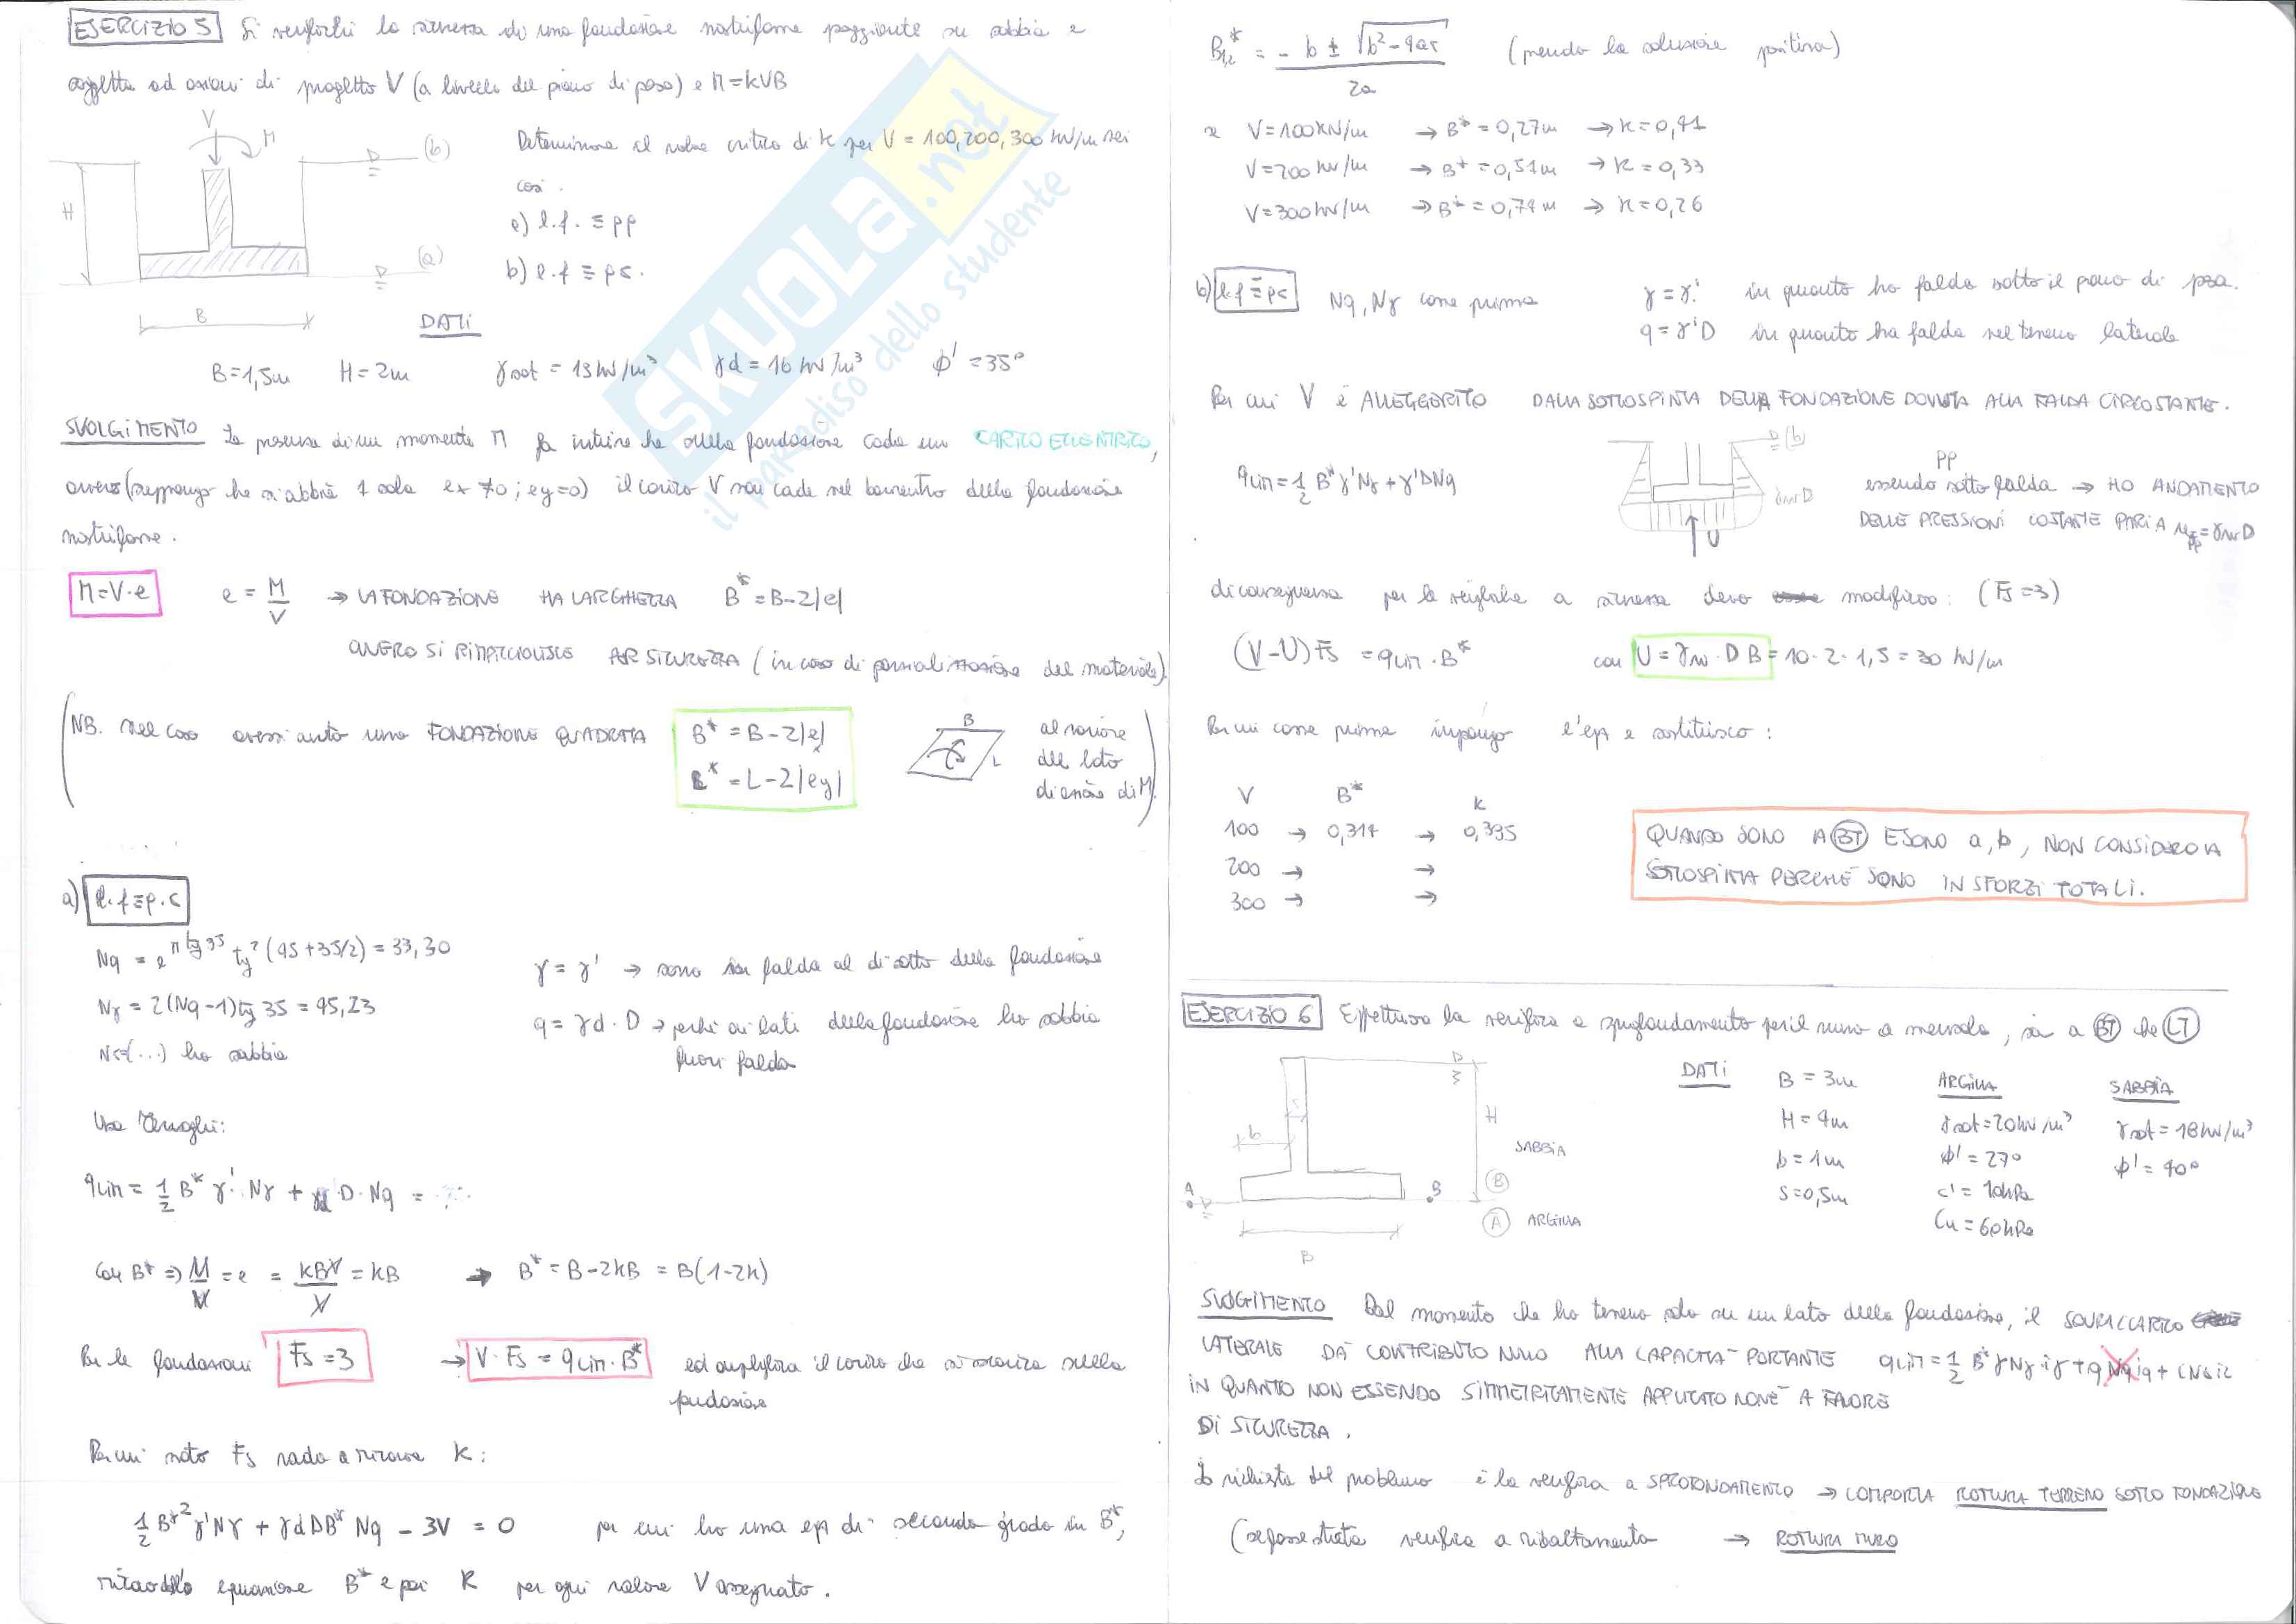 ESERCIZIO 5 Si verifichi la sicurezza di una fondazione nastriforme poggiante su sabbia e
soggetta ad azioni di progetto V (a livello del piano di posa) e M=kVB
V
M
(b)
H
(a)
B
Determinare il valore critico di k per V = 100, 200, 300 kN/m nei
casi.
a) l.f. ≡ pp
b) l.f ≡ pc.
DATI
B=1,5m H=2m γsat = 13 kN/m³ γd = 16 kN/m³ ϕ' = 35°
SVOLGIMENTO La presenza di un momento M fa intuire che sulla fondazione cade un CARICO ECCENTRICO,
ovvero (suppongo che si abbia 1 solo ex ≠0; ey=0) il carico V non cade nel baricentro della fondazione
nastriforme.
M=V·e e = M/V → LA FONDAZIONE HA LARGHEZZA B* = B-2|e|
OVVERO SI RIMPICCIOLISCE PER SICUREZZA (in caso di parzializzazione del materiale).
(NB. Nel caso avessi avuto una FONDAZIONE QUADRATA
B* = B-2|ex|
L* = L-2|ey|
B
L
al variare
del lato
di azione di M)
a) l.f ≡ p.c
Nq = e^π tg35 tg²(45+35/2) = 33,30
Nγ = 2(Nq-1)tg 35 = 45,23
Nc=(...) ho sabbia
γ = γ' → sono in falda al di sotto della fondazione
q = γd · D → perché ai lati della fondazione ho sabbia
fuori falda
Uso Terzaghi:
qlim = 1/2 B* γ' · Nγ + γd · D · Nq =
Con B* ⇒ M/V = e = kBV/V = kB → B* = B-2kB = B(1-2k)
Per le fondazioni Fs = 3 → V · Fs = qlim · B* ed amplifica il carico che si scarica sulla
fondazione
Per cui noto Fs vado a ricavare k:
1/2 B*² γ' Nγ + γd D B* Nq - 3V = 0 per cui ho una eq di secondo grado in B*,
equazione B* e poi k per ogni valore V assegnato.
B*1,2 = - b ± √b²-4ac / 2a (prendo la soluzione positiva)
se V=100 kN/m → B* = 0,27m → k = 0,41
V=200 kN/m → B* = 0,51m → k = 0,33
V=300 kN/m → B* = 0,74m → k = 0,26
b) l.f ≡ pc Nq, Nγ come prima γ = γ' in quanto ho falda sotto il piano di posa.
q = γ'D in quanto ho falda nel terreno laterale
Per cui V è ALLEGGERITO DALLA SOTTOSPINTA DELLA FONDAZIONE DOVUTA ALLA FALDA CIRCOSTANTE.
qlim = 1/2 B* γ' Nγ + γ' D Nq
(b)
γw D
U
pp
essendo sotto falda → HO ANDAMENTO
DELLE PRESSIONI COSTANTE PARI A upp = γw D
di conseguenza per le verifiche a sicurezza devo modificare: (Fs =3)
(V-U) Fs = qlim · B* con U = γw · D B = 10 · 2 · 1,5 = 30 kN/m
Per cui come prima impongo l'eq e sostituisco:
V B* k
100 → 0,314 → 0,395
200 → →
300 → →
QUANDO SONO A BT E SONO a, b, NON CONSIDERO LA
SOTTOSPINTA PERCHÉ SONO IN SFORZI TOTALI.
ESERCIZIO 6 Effettuare la verifica a sprofondamento per il muro a mensola, sia a BT che LT
s
b
H
SABBIA
A
B
B
A ARGILLA
B
DATI
B = 3m
H = 4m
b = 1m
s = 0,5m
ARGILLA
γsat = 20 kN/m³
ϕ' = 27°
c' = 10 kPa
Cu = 60 kPa
SABBIA
γsat = 18 kN/m³
ϕ' = 40°
SVOLGIMENTO Dal momento che ho terreno solo su un lato della fondazione, il SOVRACCARICO
LATERALE DÀ CONTRIBUTO NULLO ALLA CAPACITÀ PORTANTE qlim = 1/2 B* γ Nγ iγ + q Nq iq + c Nc ic
IN QUANTO NON ESSENDO SIMMETRICAMENTE APPLICATO NON È A FAVORE
DI SICUREZZA.
La richiesta del problema è la verifica a SPROFONDAMENTO → COMPORTA ROTTURA TERRENO SOTTO FONDAZIONE
(se fosse stata verifica a ribaltamento → ROTTURA MURO
SKUOLA.net
il paradiso dello studente